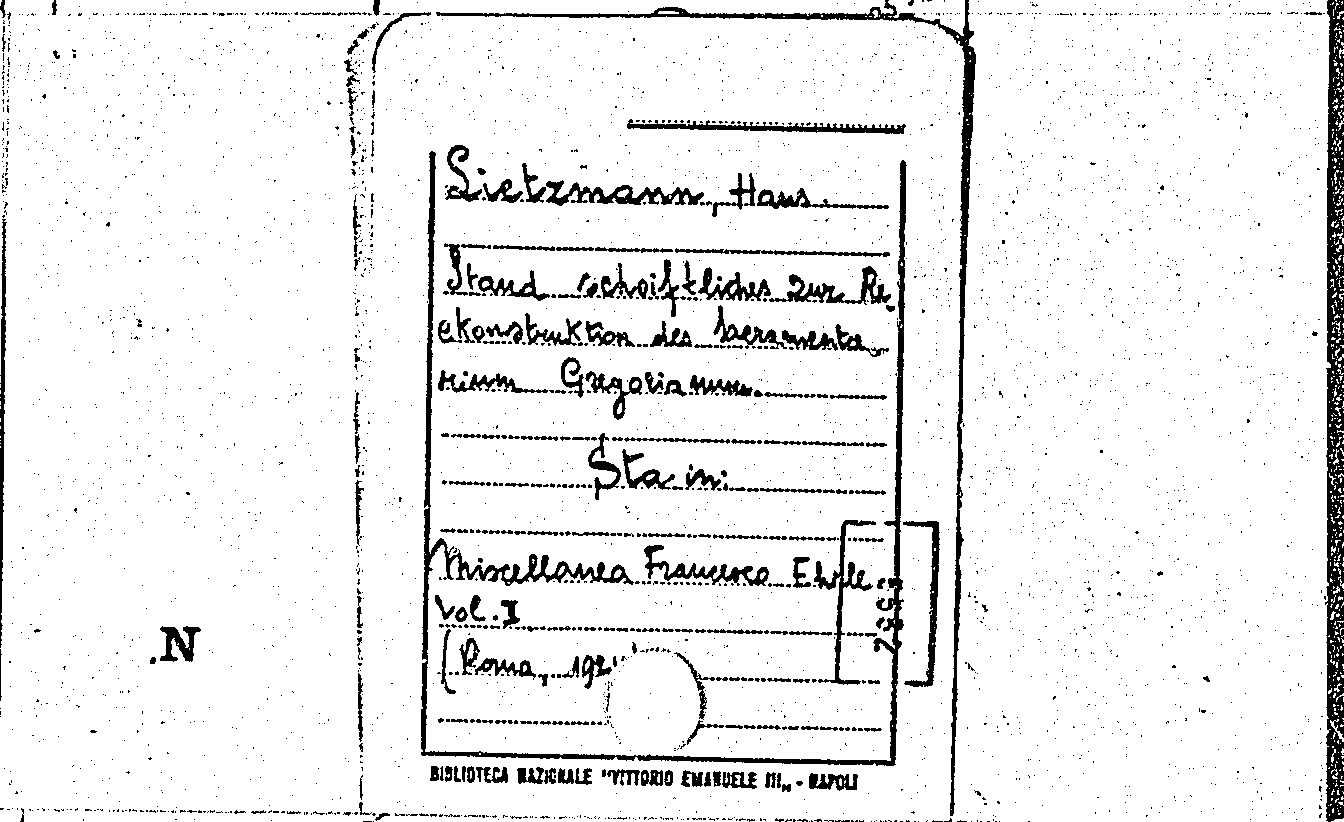 Lietzmann, Hans.
Stand schriftliches zur Re-
ekonstruktion des Sacramenta
rium Gregorianum.
Sta in:
Miscellanea Francesco Ehrle
Vol. II
(Roma, 192
.N
BIBLIOTECA NAZIONALE "VITTORIO EMANUELE III„ - NAPOLI